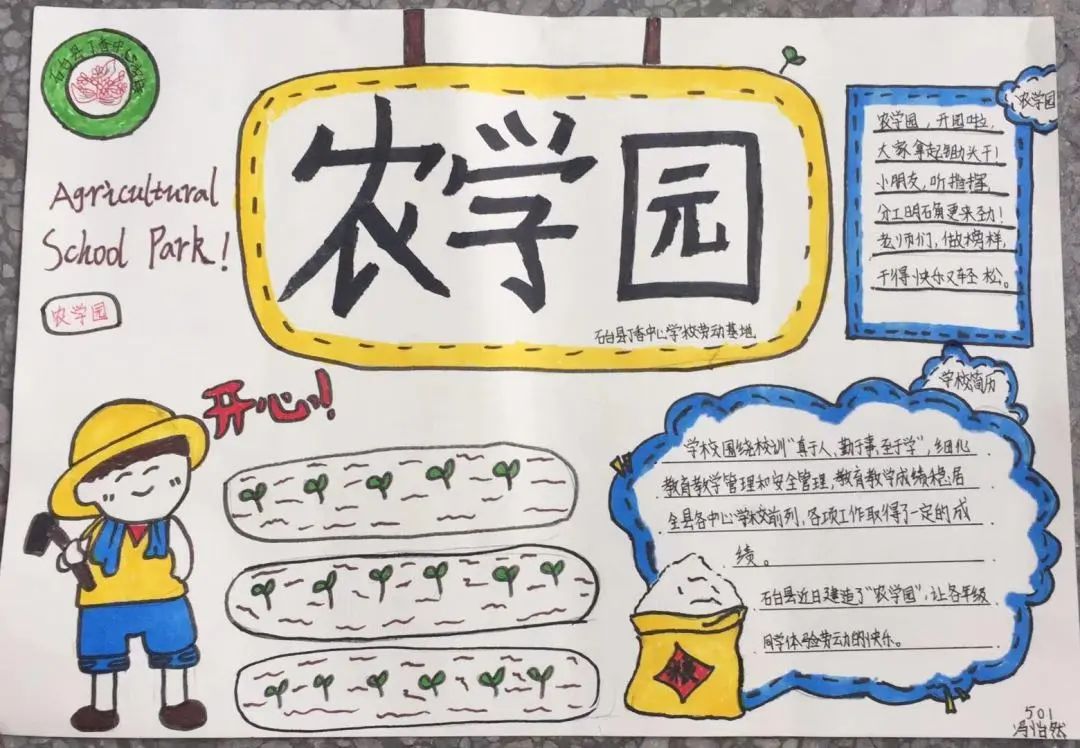 石台县丁香中心学校
Agricultural
School Park!
农学园
农学园
石台县丁香中心学校劳动基地
农学园
农学园，开园啦，
大家拿起锄头干！
小朋友，听指挥，
分工明确更来劲！
老师们，做榜样，
干得快乐又轻松。
开心！
学校简历
学校围绕校训“真于人，勤于事，至于学”，细化
教育教学管理和安全管理，教育教学成绩稳居
全县各中心学校前列，各项工作取得了一定的成
绩。
石台县近日建造了“农学园”，让各年级
同学体验劳动的快乐。
501
冯怡然